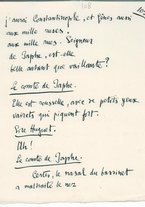 108
j'aurai Constantinople, et Gênes aussi
aux mille ruses.
aux mille mus. Seigneur
de Japhe, est-elle
belle autant que vaillante ?
Le comte de Japhe.
Elle est rousselle, avec ses petits yeux
vairets qui piquent fort.
Sire Hugues.
Ah !
Le comte de Japhe.
Certes, le nasal du bassinet
a maltraité le nez